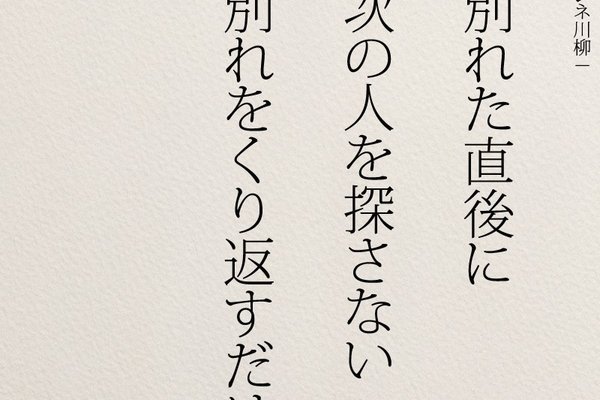 ネ川柳－
別れた直後に
次の人を探さない
別れをくり返すだけ